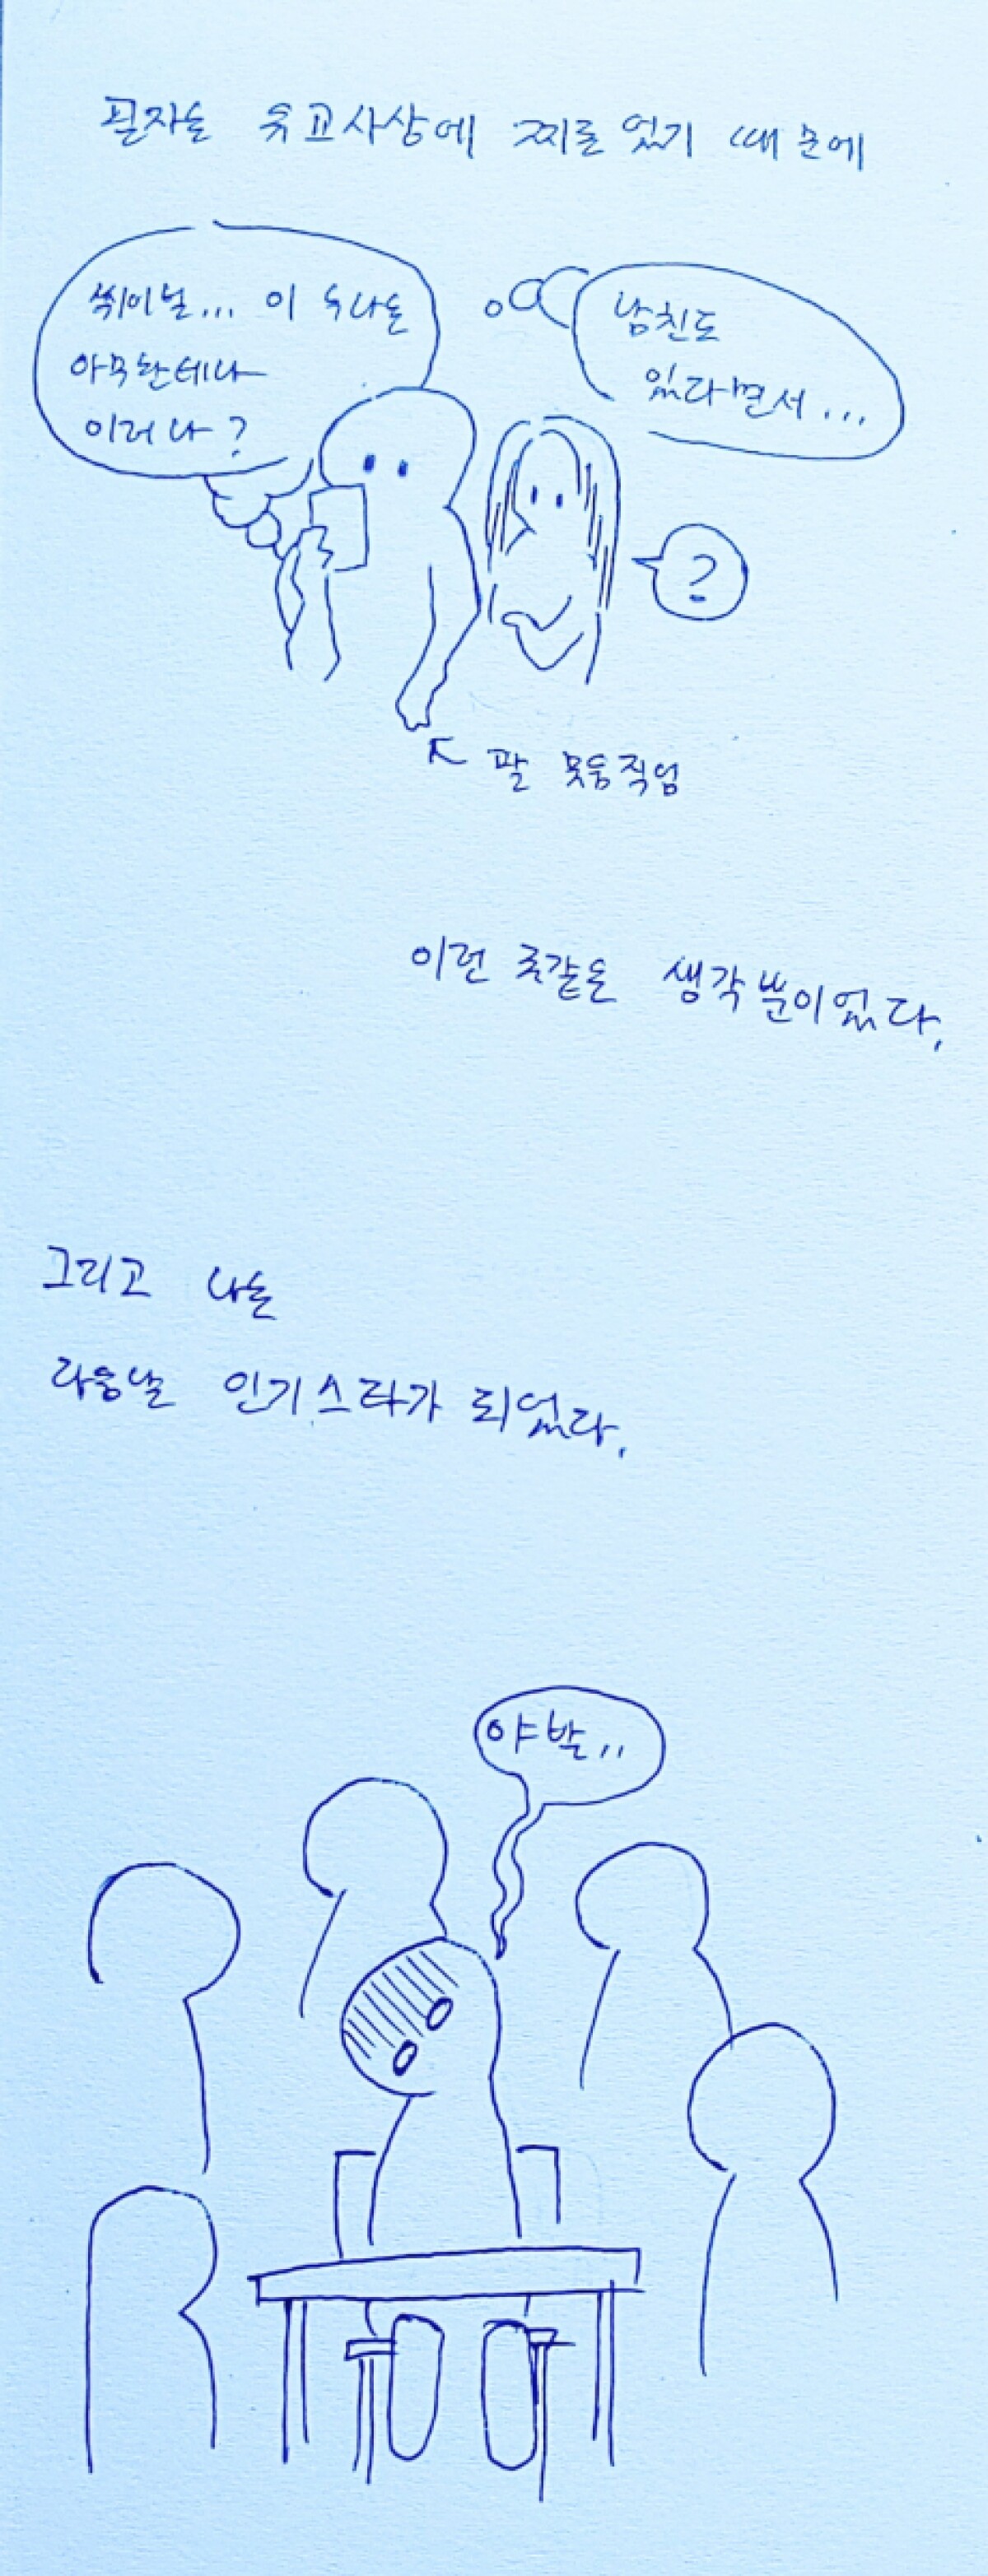 필자는 유교사상에 찌들었기 때문에
씌이벌... 이 누나는
아무한테나
이러나?
남친도
있다면서...
?
팔 못움직임
이런 좆같은 생각뿐이었다.
그리고 나는
다음날 인기스타가 되었다.
야발..